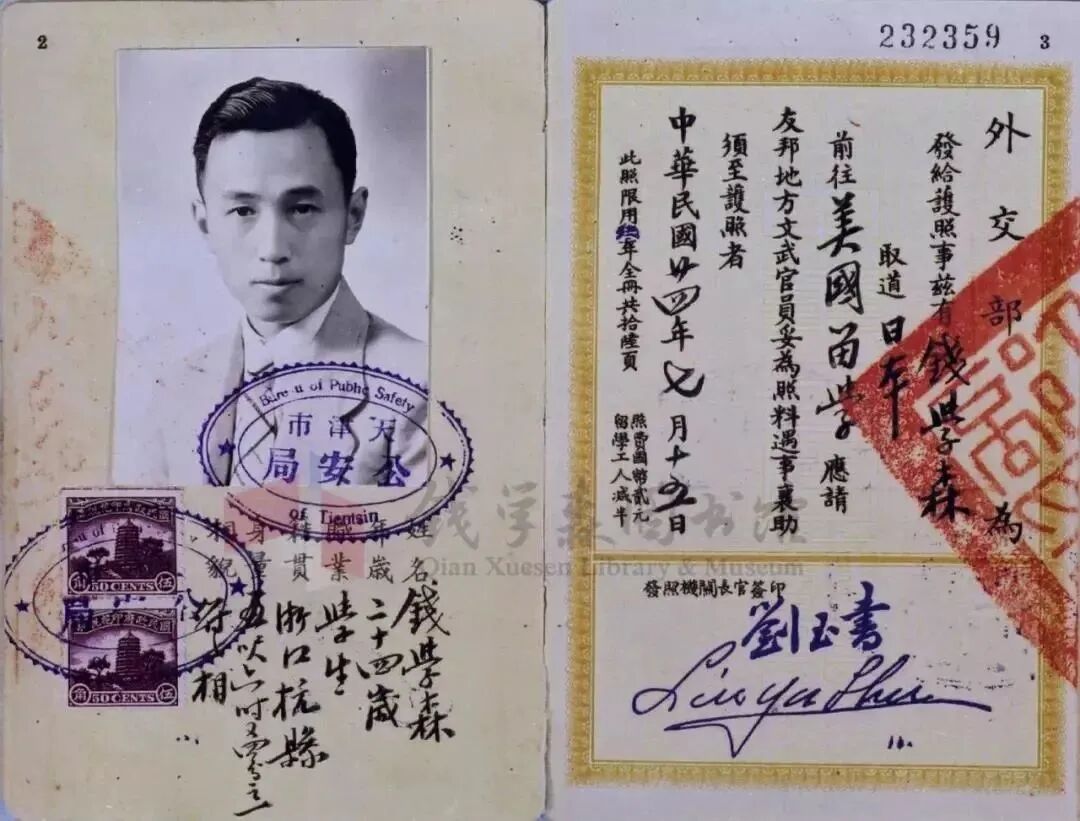 2
Bureau of Public Safety
天津市
公安局
of Tientsin
50 CENTS
50 CENTS
姓名 錢學森
年歲 二十四歲
職業 學生
籍貫 浙江杭縣
身量 五呎六吋又四分之一
相貌 照相
232359
3
外交部為
發給護照事茲有 錢學森
取道 日本
前往 美國留學 應請
友邦地方文武官員妥為照料遇事襄助
須至護照者
中華民國廿四年七月十五日
此照限用年全冊共拾陸頁
照費國幣貳元
留學工人減半
發照機關長官簽印
劉玉書
Liu Yu Shu
钱学森图书馆
Qian Xuesen Library & Museum